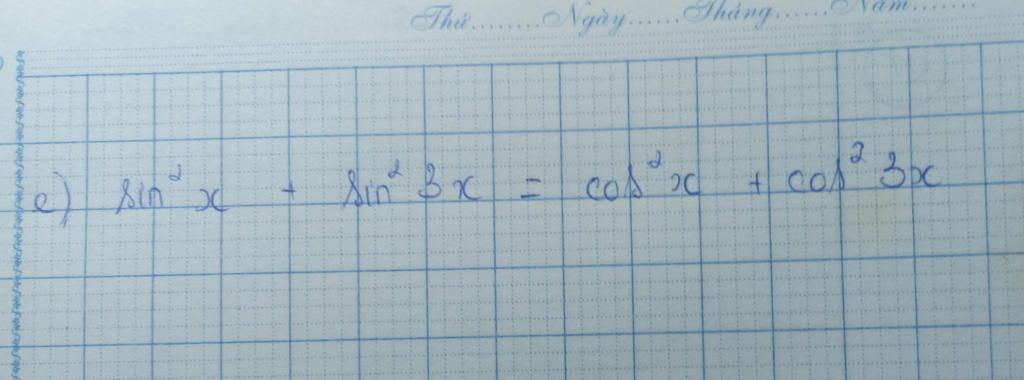 Thứ.......Ngày......Tháng......Năm.......
e) sin² x + sin² 3x = cos² x + cos² 3x